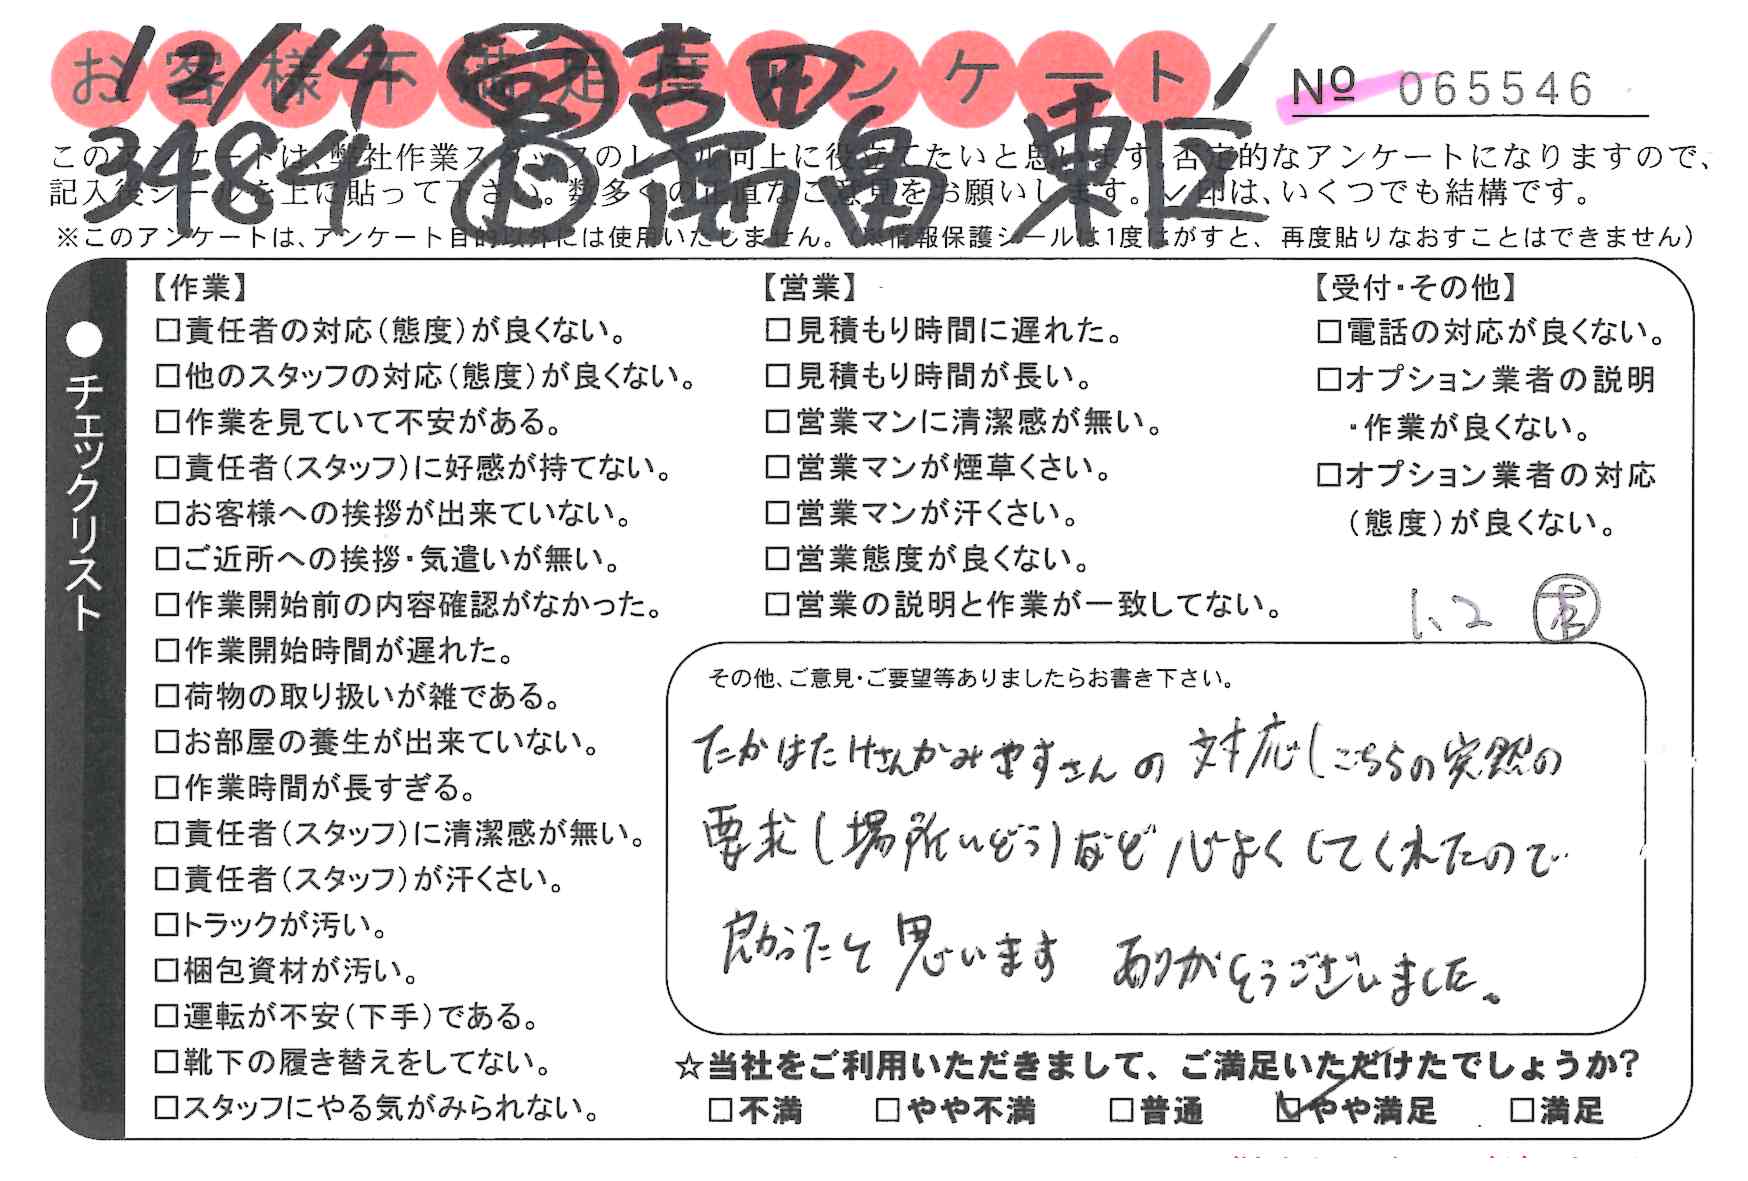 お客様不満足度アンケート
12/14 営 吉田
№ 065546
3484 高畠 東区
このアンケートは、弊社作業スタッフのレベル向上に役立てたいと思います。否定的なアンケートになりますので、
記入後シールを上に貼って下さい。数多くの正直なご意見をお願いします。✓印は、いくつでも結構です。
※このアンケートは、アンケート目的以外には使用いたしません。(※情報保護シールは1度はがすと、再度貼りなおすことはできません)
●チェックリスト
【作業】
□責任者の対応(態度)が良くない。
□他のスタッフの対応(態度)が良くない。
□作業を見ていて不安がある。
□責任者(スタッフ)に好感が持てない。
□お客様への挨拶が出来ていない。
□ご近所への挨拶・気遣いが無い。
□作業開始前の内容確認がなかった。
□作業開始時間が遅れた。
□荷物の取り扱いが雑である。
□お部屋の養生が出来ていない。
□作業時間が長すぎる。
□責任者(スタッフ)に清潔感が無い。
□責任者(スタッフ)が汗くさい。
□トラックが汚い。
□梱包資材が汚い。
□運転が不安(下手)である。
□靴下の履き替えをしてない。
□スタッフにやる気がみられない。
【営業】
□見積もり時間に遅れた。
□見積もり時間が長い。
□営業マンに清潔感が無い。
□営業マンが煙草くさい。
□営業マンが汗くさい。
□営業態度が良くない。
□営業の説明と作業が一致してない。
【受付・その他】
□電話の対応が良くない。
□オプション業者の説明
・作業が良くない。
□オプション業者の対応
(態度)が良くない。
1、2
その他、ご意見・ご要望等ありましたらお書き下さい。
たかはたけさんかみやすさんの 対応(こちらの突然の
要求(場所いどう)など心よくしてくれたので
良かったと思います ありがとうございました。
☆当社をご利用いただきまして、ご満足いただけたでしょうか?
□不満 □やや不満 □普通 ☑やや満足 □満足